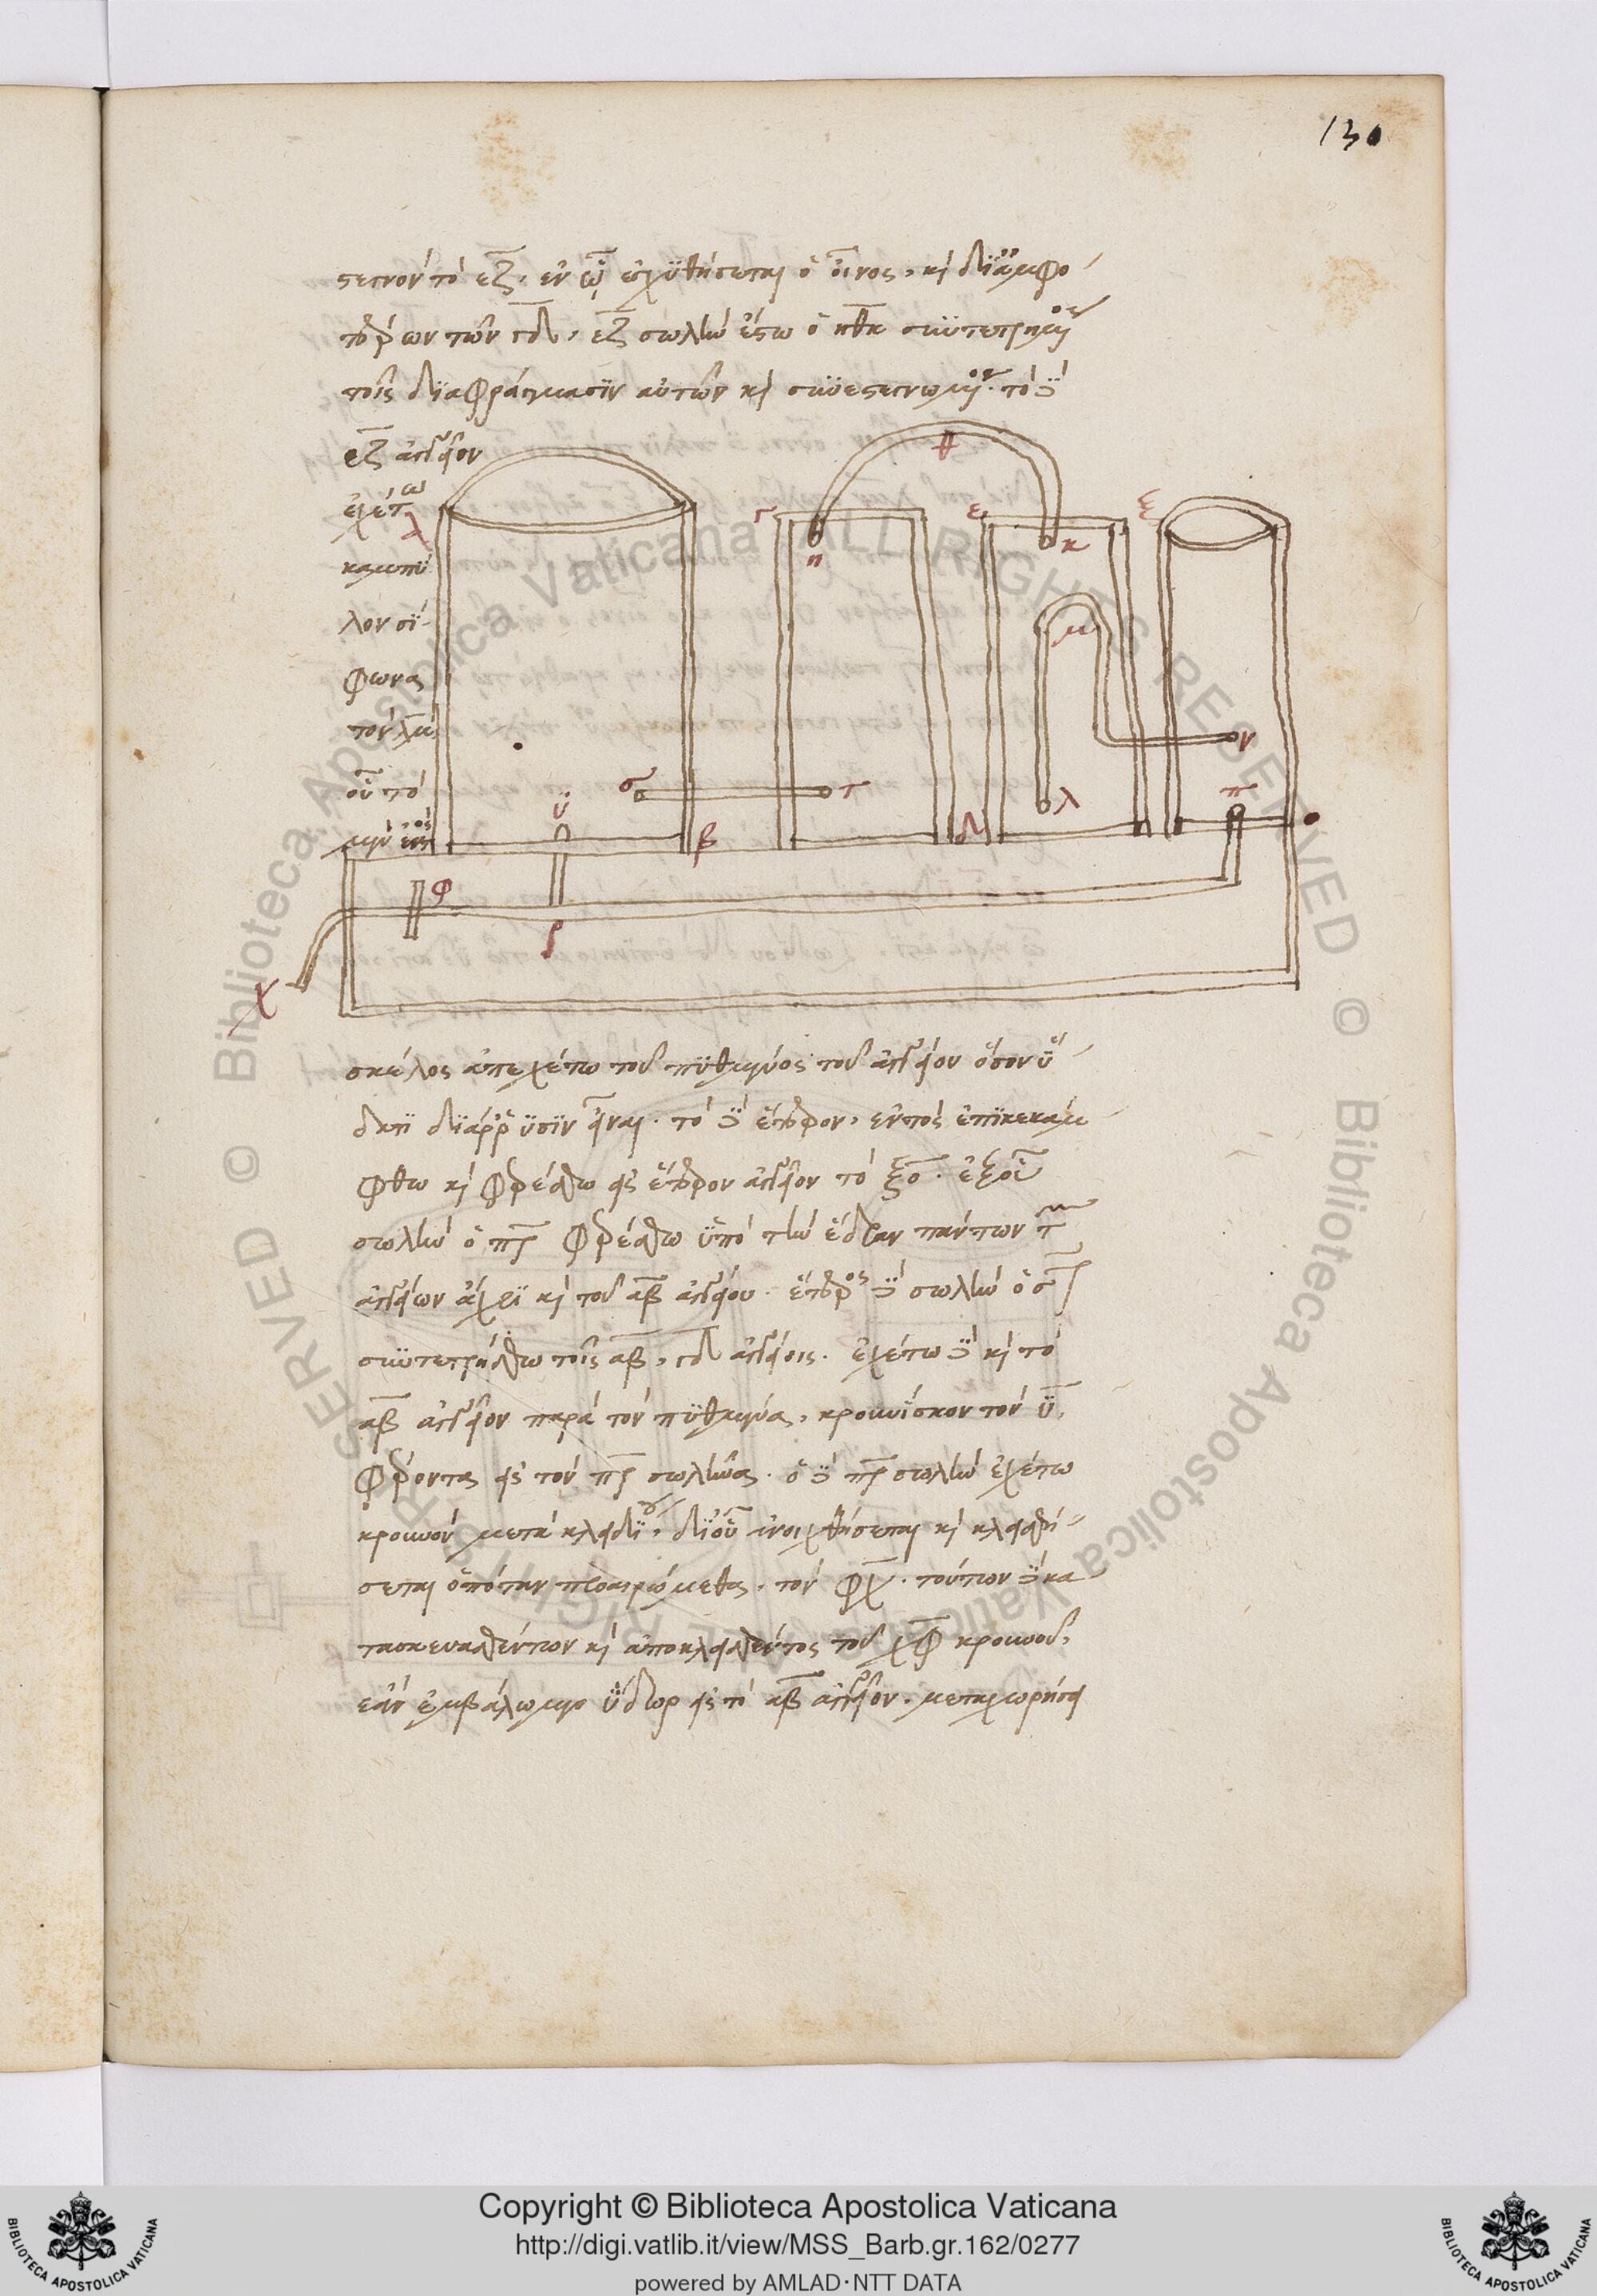 130
στεγνὸν τὸ εζ, ἐν ᾧ ἐγχυθήσεται ὁ οἶνος, καὶ δι' ἀμφο
τέρων τῶν γδ, εζ σωλὴν ἔστω ὁ ηθκ συντετρημένος
τοῖς διαφράγμασιν αὐτῶν καὶ συνεστεγνωμένος. τὸ δὲ
εζ ἀγγεῖον
ἐχέτω
καμπύ
λον σί
φωνα
τὸν λμ
οὗ τὸ
μὲν ἐντὸς
α
β
γ
δ
ε
η
θ
κ
λ
μ
ν
ξ
ο
π
ρ
σ
τ
υ
φ
χ
σκέλος ἀπεχέτω τοῦ πυθμένος τοῦ ἀγγείου ὅσον ὕ
δατι διάρρυσιν εἶναι. τὸ δὲ ἕτερον, ἐντὸς ἐπικεκάμ
φθω καὶ φερέσθω εἰς ἕτερον ἀγγεῖον τὸ ξο. ἐξ οὗ
σωλὴν ὁ πρ φερέσθω ὑπὸ τὴν ἕδραν πάντων τῶν
ἀγγείων ἄχρι καὶ τοῦ αβ ἀγγείου. ἕτερος δὲ σωλὴν ὁ στ
συντετρήσθω τοῖς αβ, γδ ἀγγείοις. ἐχέτω δὲ καὶ τὸ
αβ ἀγγεῖον παρὰ τὸν πυθμένα, κρουνίσκον τὸν υ,
φέροντα εἰς τὸν πρ σωλῆνα. ὁ δὲ πρ σωλὴν ἐχέτω
κρουνὸν μετὰ κλειδίου, δι' οὗ ἀνοιχθήσεται καὶ κλεισθή
σεται ὁπόταν προαιρώμεθα, τὸν φχ. τούτων δὲ κα
τασκευασθέντων καὶ ἀποκλεισθέντος τοῦ χφ κρουνοῦ,
ἐὰν ἐμβάλωμεν ὕδωρ εἰς τὸ αβ ἀγγεῖον, μεταχωρήσει
Copyright © Biblioteca Apostolica Vaticana
http://digi.vatlib.it/view/MSS_Barb.gr.162/0277
powered by AMLAD·NTT DATA
© Biblioteca Apostolica Vaticana ALL RIGHTS RESERVED © Biblioteca Apostolica Vaticana ALL RIGHTS RESERVED
BIBLIOTECA APOSTOLICA VATICANA
BIBLIOTECA APOSTOLICA VATICANA